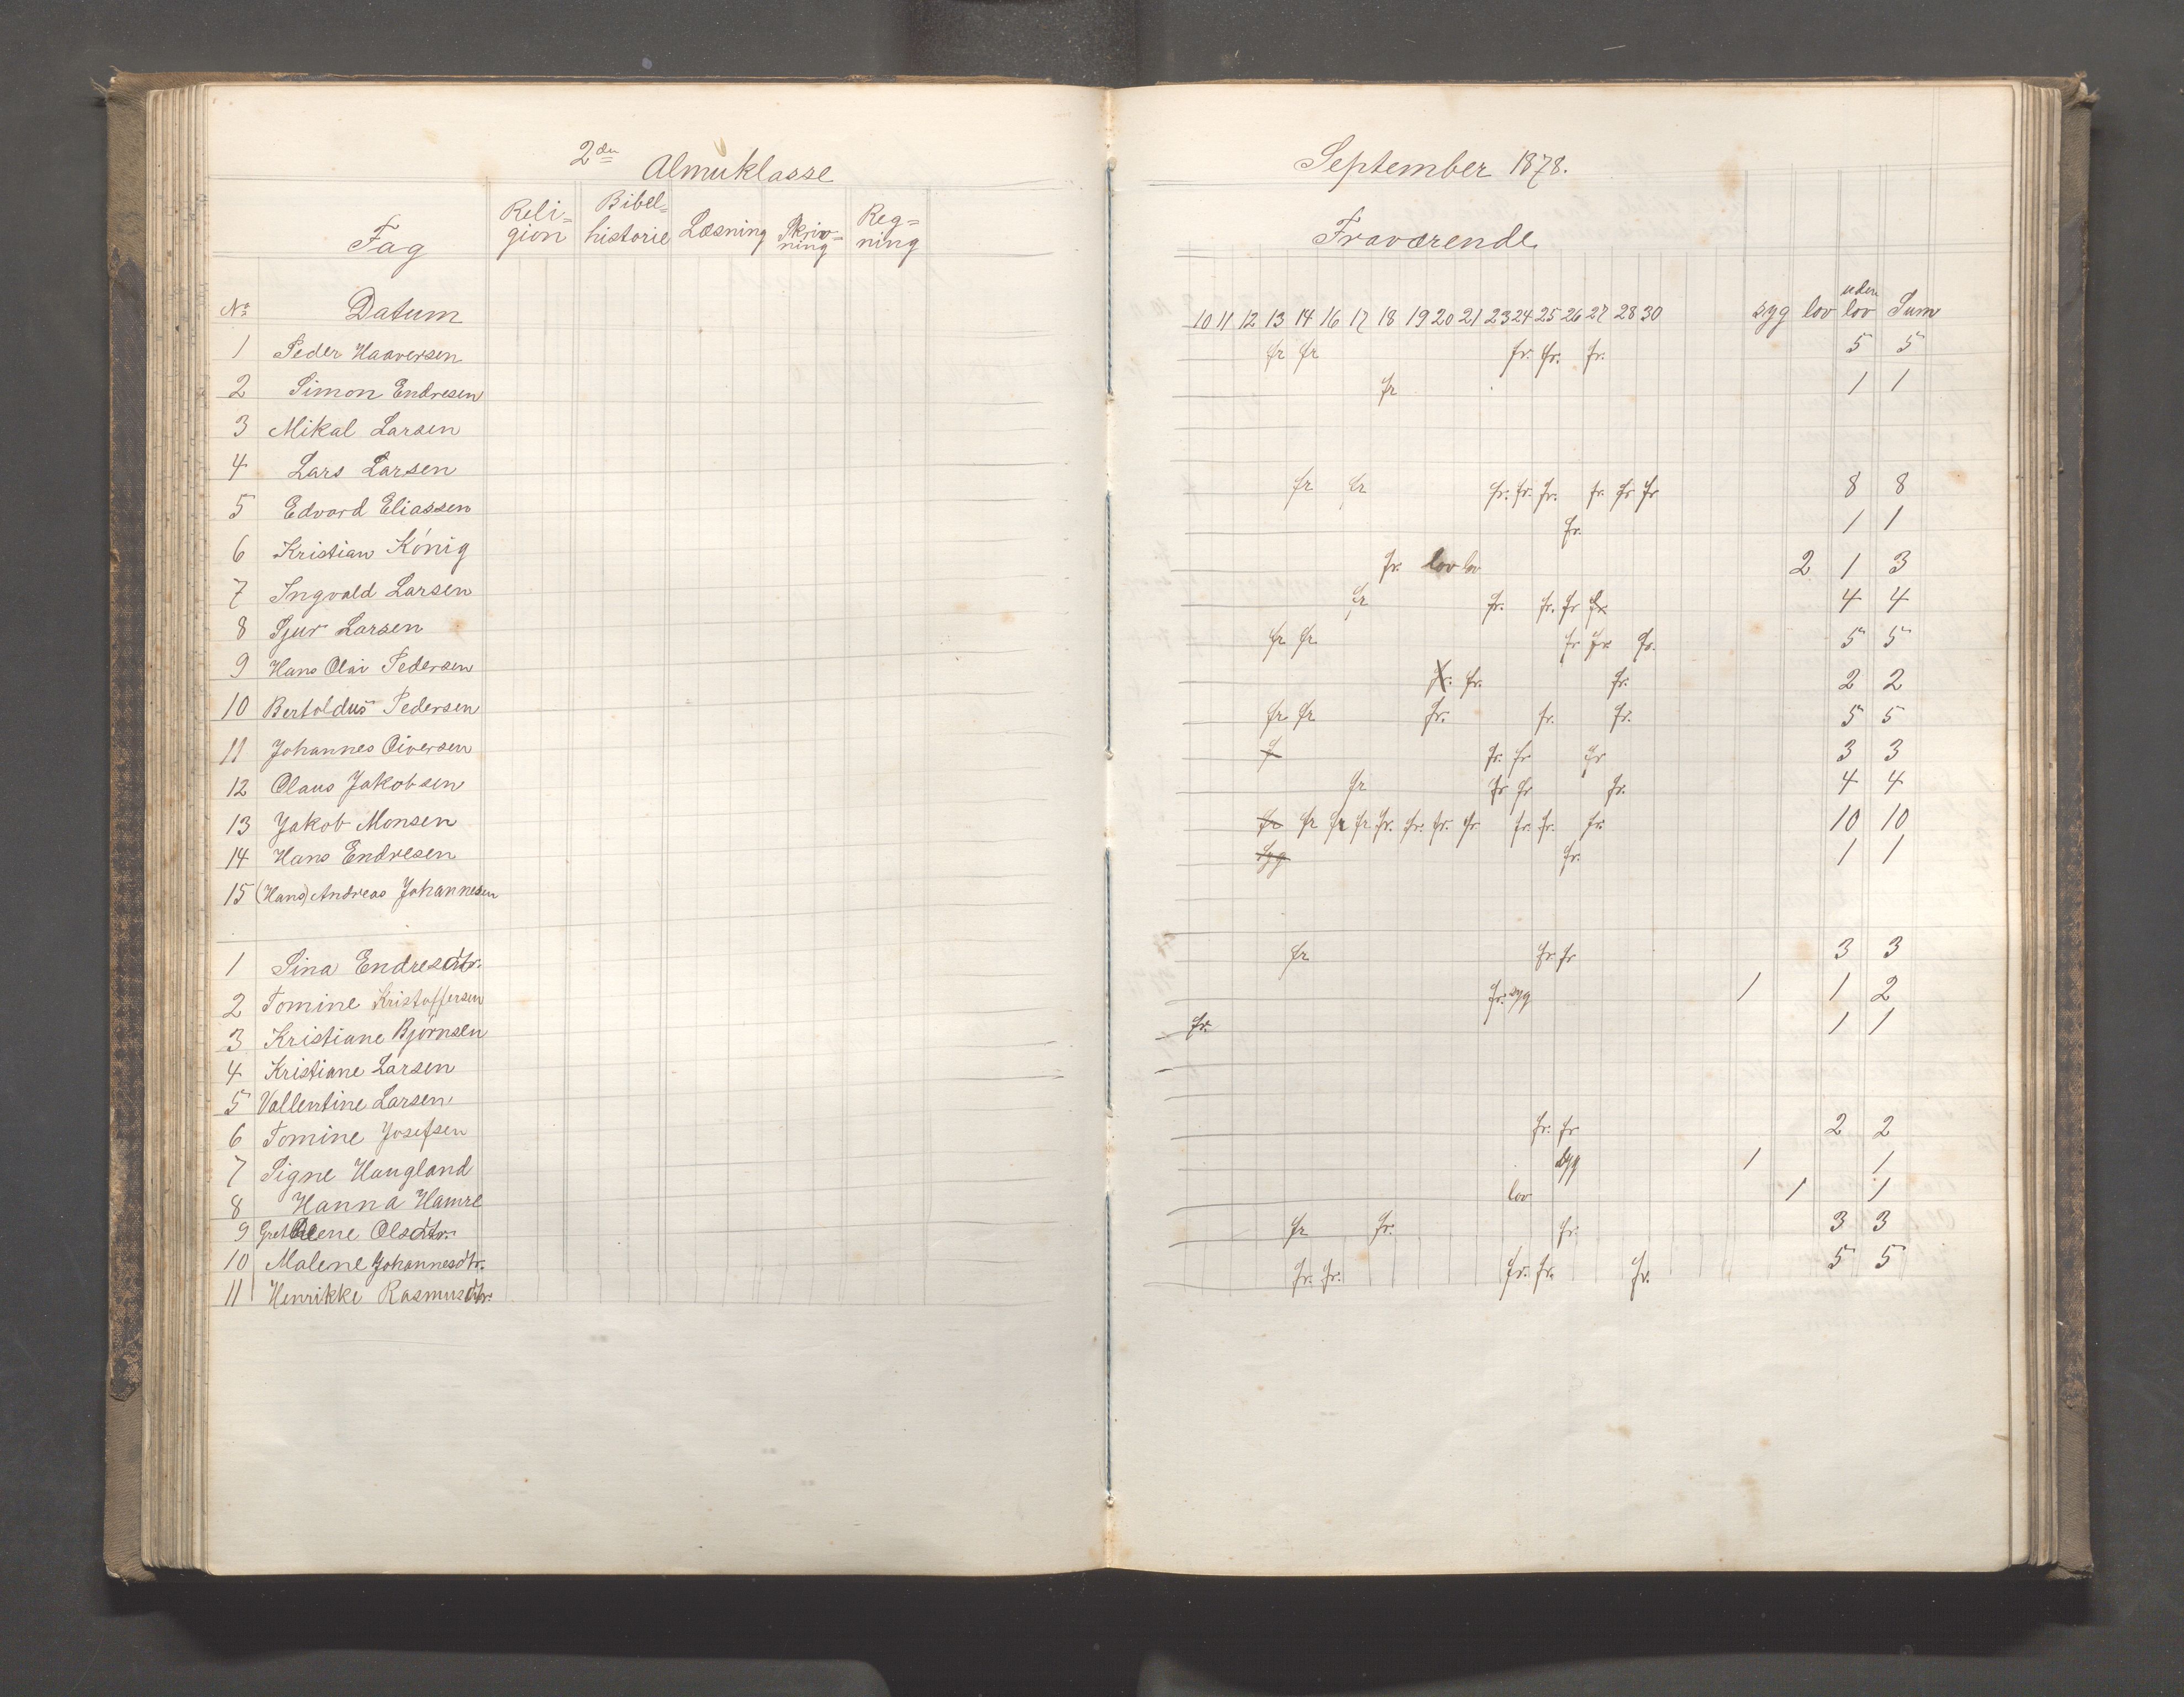 2den Almuklasse
Fag Reli=gion Bibel=historie Læsning Skriv=ning Reg=ning
No Datum
1 Peder Haaversen
2 Simon Endresen
3 Mikal Larsen
4 Lars Larsen
5 Edvard Eliassen
6 Kristian König
7 Ingvald Larsen
8 Sjur Larsen
9 Hans Olai Pedersen
10 Bertoldus Pedersen
11 Johannes Oiversen
12 Olaus Jakobsen
13 Jakob Monsen
14 Hans Endresen
15 (Hans) Andreas Johannesen
1 Sina Endresdtr.
2 Tomine Kristoffersen
3 Kristiane Bjørnsen
4 Kristiane Larsen
5 Vallentine Larsen
6 Tomine Josefsen
7 Signe Haugland
8 Hanna Hamre
9 Grethelene Olsdtr.
10 Malene Johannesdtr.
11 Henrikke Rasmusdtr.
September 1878.
Fraværende
10 11 12 13 14 16 17 18 19 20 21 23 24 25 26 27 28 30 syg lov uden lov Sum
fr fr fr. fr. fr. 5 5
fr 1 1
fr fr fr. fr. fr. fr. fr fr 8 8
fr. 1 1
fr. lov lov 2 1 3
fr fr. fr. fr fr. 4 4
fr fr fr fr. fr. 5 5
fr. fr. fr. 2 2
fr fr fr. fr. fr. 5 5
f fr. fr fr 3 3
fr fr fr fr. 4 4
fr fr fr fr fr. fr. fr. fr fr. fr. fr. 10 10
syg fr. 1 1
fr fr. fr 3 3
fr. syg 1 1 2
fr. 1 1
fr. fr 2 2
syg 1 1
lov 1 1
fr fr. fr. 3 3
fr. fr. fr. fr. fr. 5 5